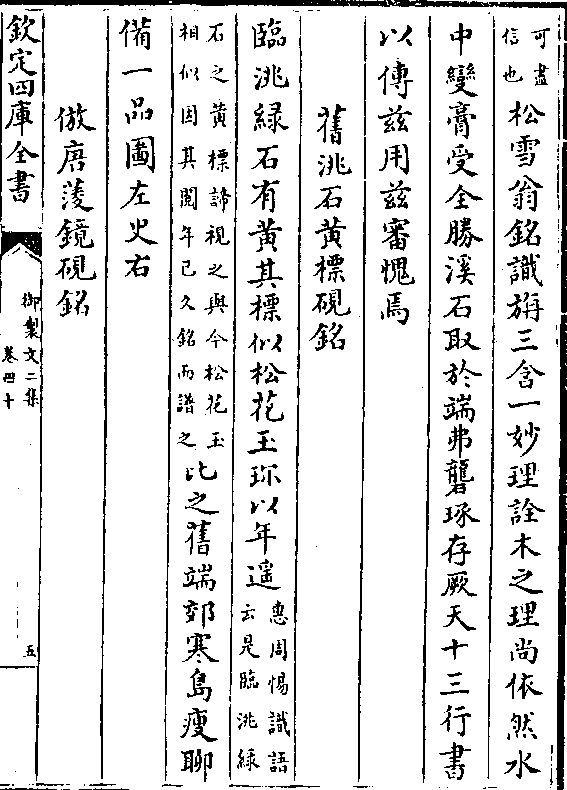 可盡
信也
松雪翁銘識旃三含一妙理詮木之理尚依然水
中變膏受全勝溪石取於端弗礱琢存厥天十三行書
以傳兹用兹審愧焉
舊洮石黄標硯銘
臨洮緑石有黄其標似松花玉珎以年遥
惠周惕識語
云是臨洮緑
石之黄標諦視之與今松花玉
相似因其閲年已久銘而譜之
比之舊端郊寒島瘦聊
備一品圖左史右
倣唐菱鏡硯銘
欽定四庫全書
御製文二集
卷四十
五